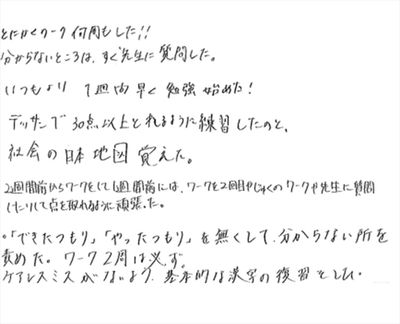 とにかくワーク何周もした!!
分からないところは、すぐ先生に質問した。
いつもより 1週間早く勉強始めた!
デッサンで30点以上とれるように練習したのと、
社会の日本地図覚えた。
2週間前からワークをして1週間前には、ワークを2回目やじゅくのワークや先生に質問
したりして点を取れるように頑張った。
「できたつもり」「やったつもり」を無くして、分からない所を
責めた。ワーク2周は必ず。
ケアレスミスがないよう、基本的な漢字の復習